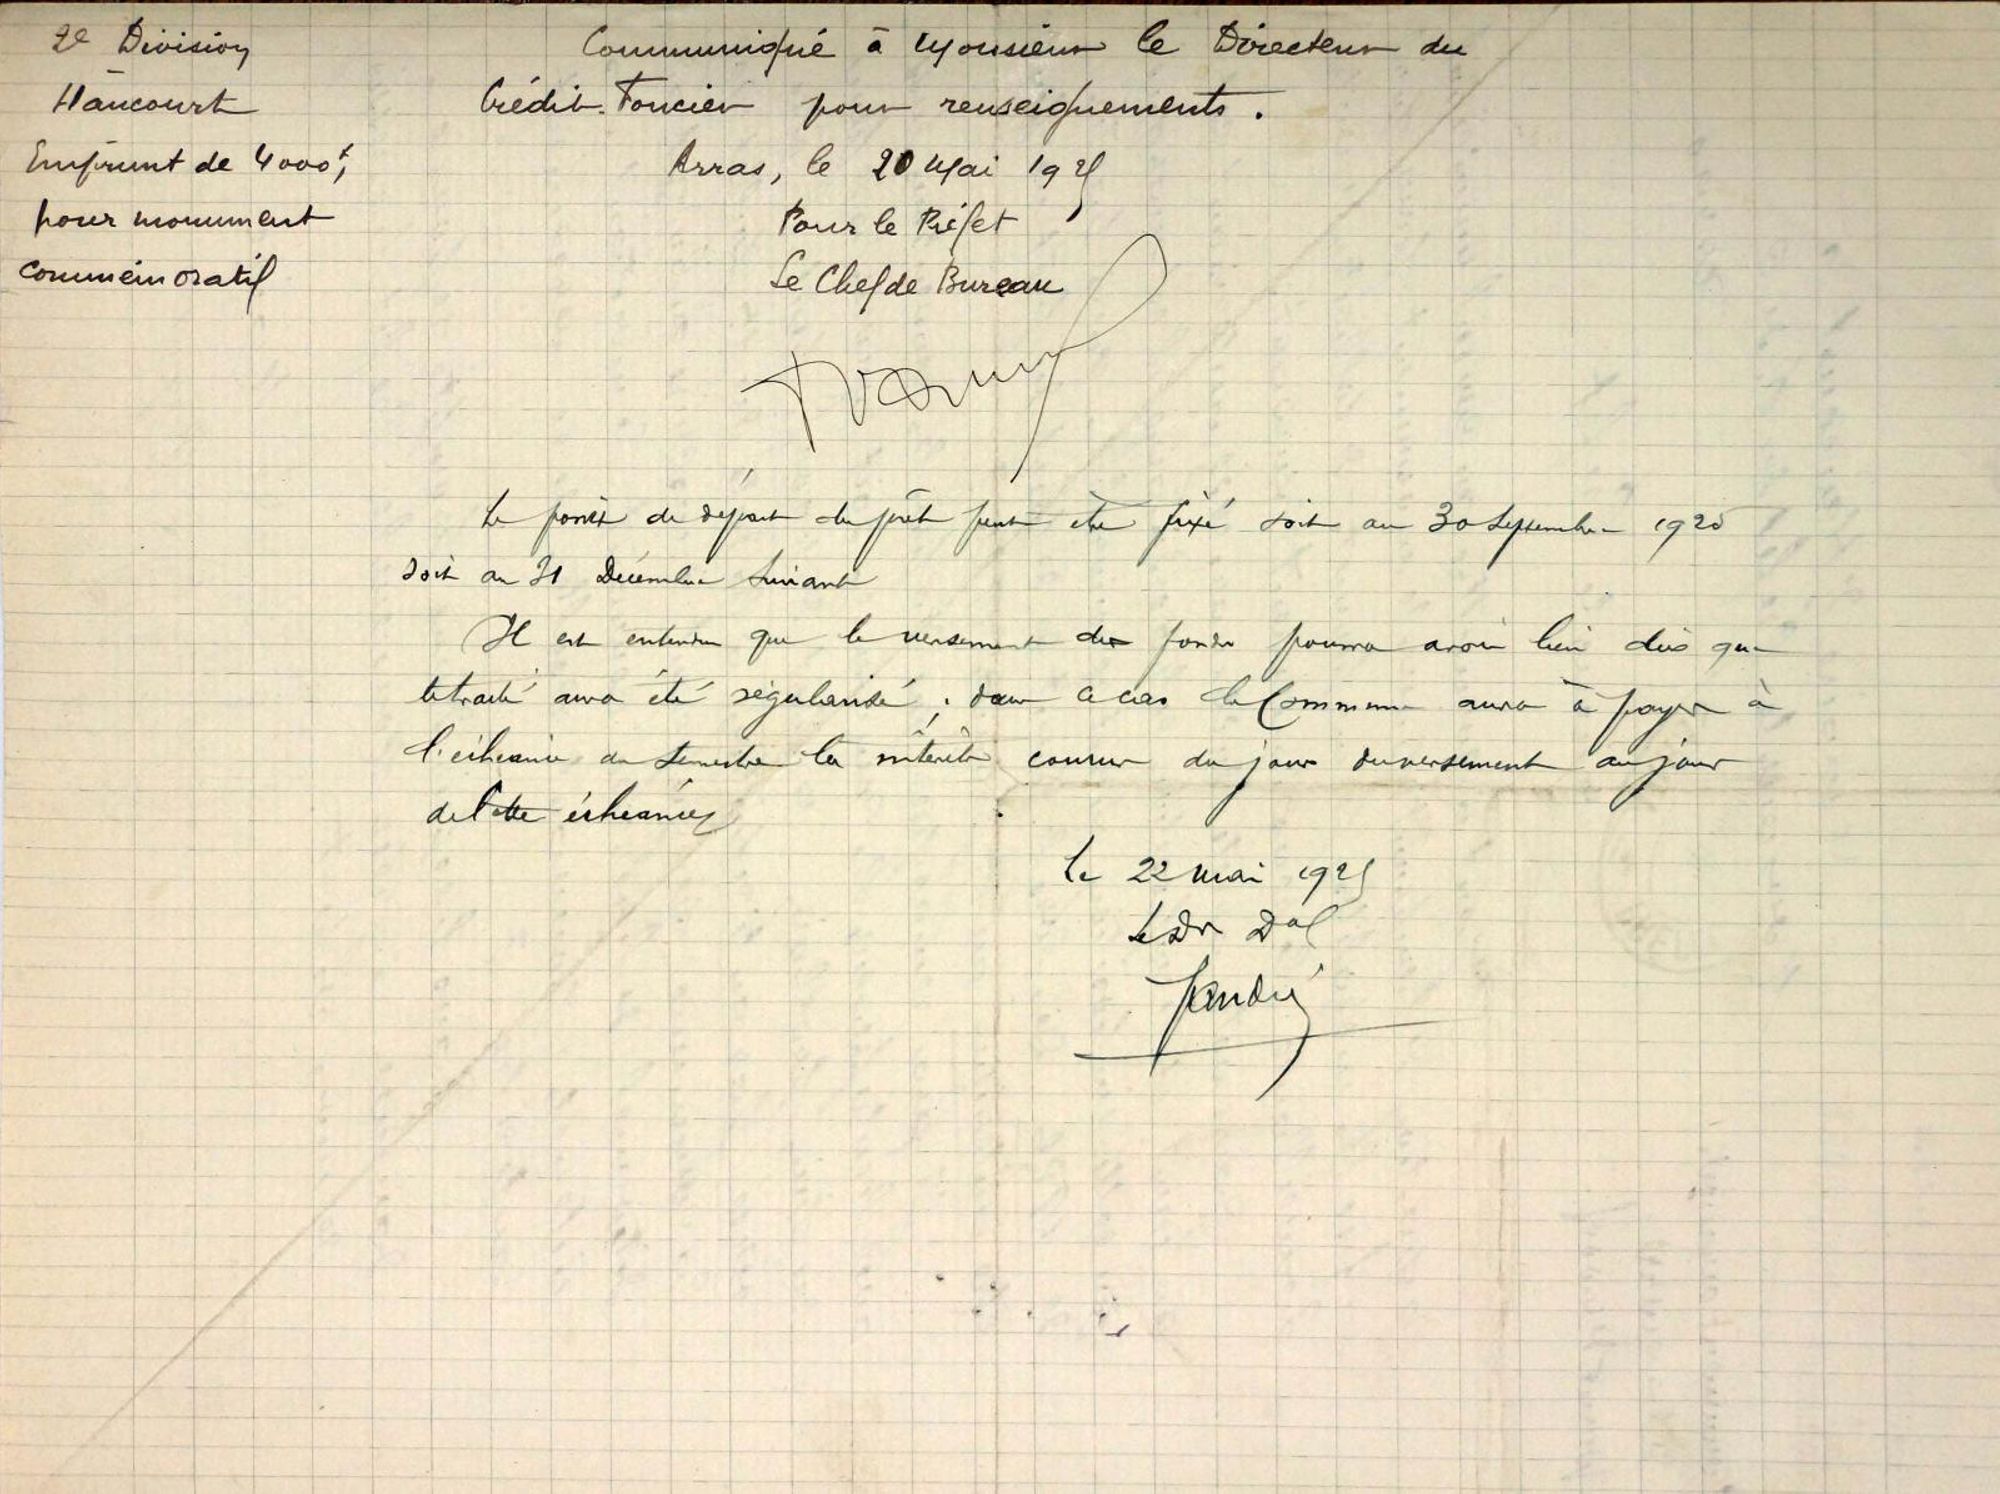 2e Division
Hancourt
Emprunt de 4000f,
pour monument
commémoratif
Communiqué à Monsieur le Directeur du
Crédit-Foncier pour renseignements.
Arras, le 20 Mai 1925
Pour le Préfet
Le Chef de Bureau
Le point de départ du prêt peut être fixé soit au 30 Septembre 1925
soit au 31 Décembre suivant
Il est entendu que le versement des fonds pourra avoir lieu dès que
le traité aura été régularisé ; dans ce cas la Commune aura à payer à
l'échéance du semestre les intérêts courus du jour du versement au jour
de cette échéance
Le 22 mai 1925
Le Dr Dal